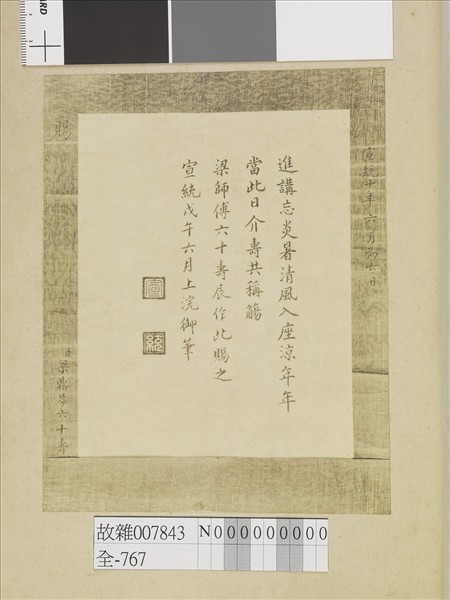 宣統十年六月初六日
進講忘炎暑清風入座涼年年
當此日介壽共稱觴
梁師傅六十壽辰作此賜之
宣統戊午六月上浣御筆
宣
統
賜
梁鼎芬六十壽
故雜007843
全-767
N000000000